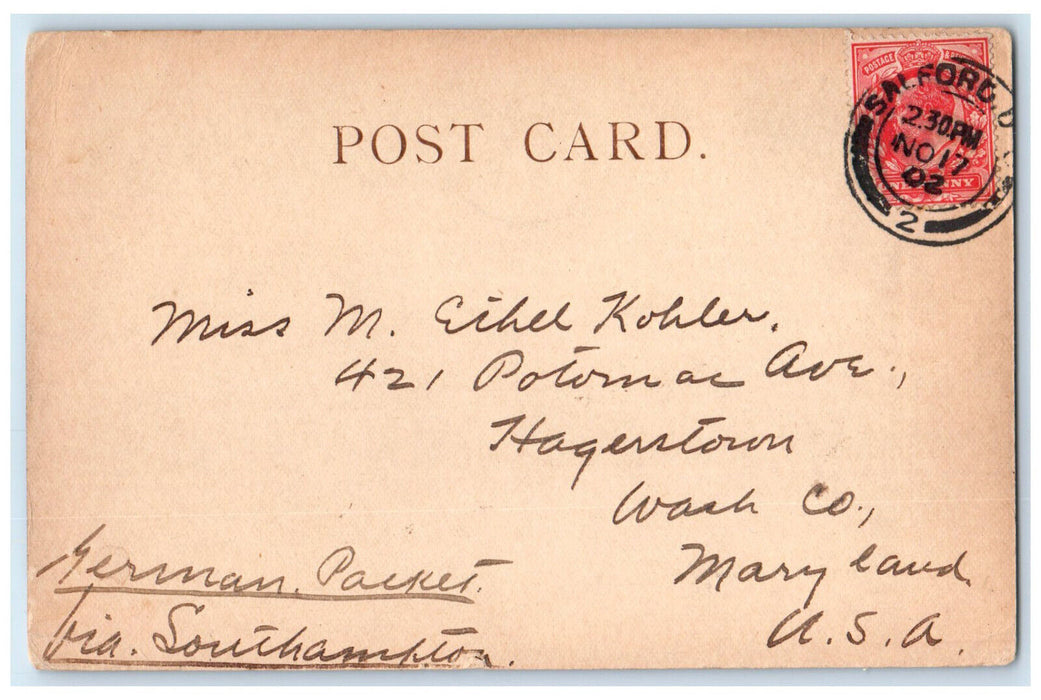 POSTAGE
SALFORD
2.30PM
NO 17
02
2
POST CARD.
Miss M. Ethel Kohler.
421 Potomac Ave.,
Hagerstown
Wash Co.,
Maryland
U.S.A
German Packet.
via. Southampton.